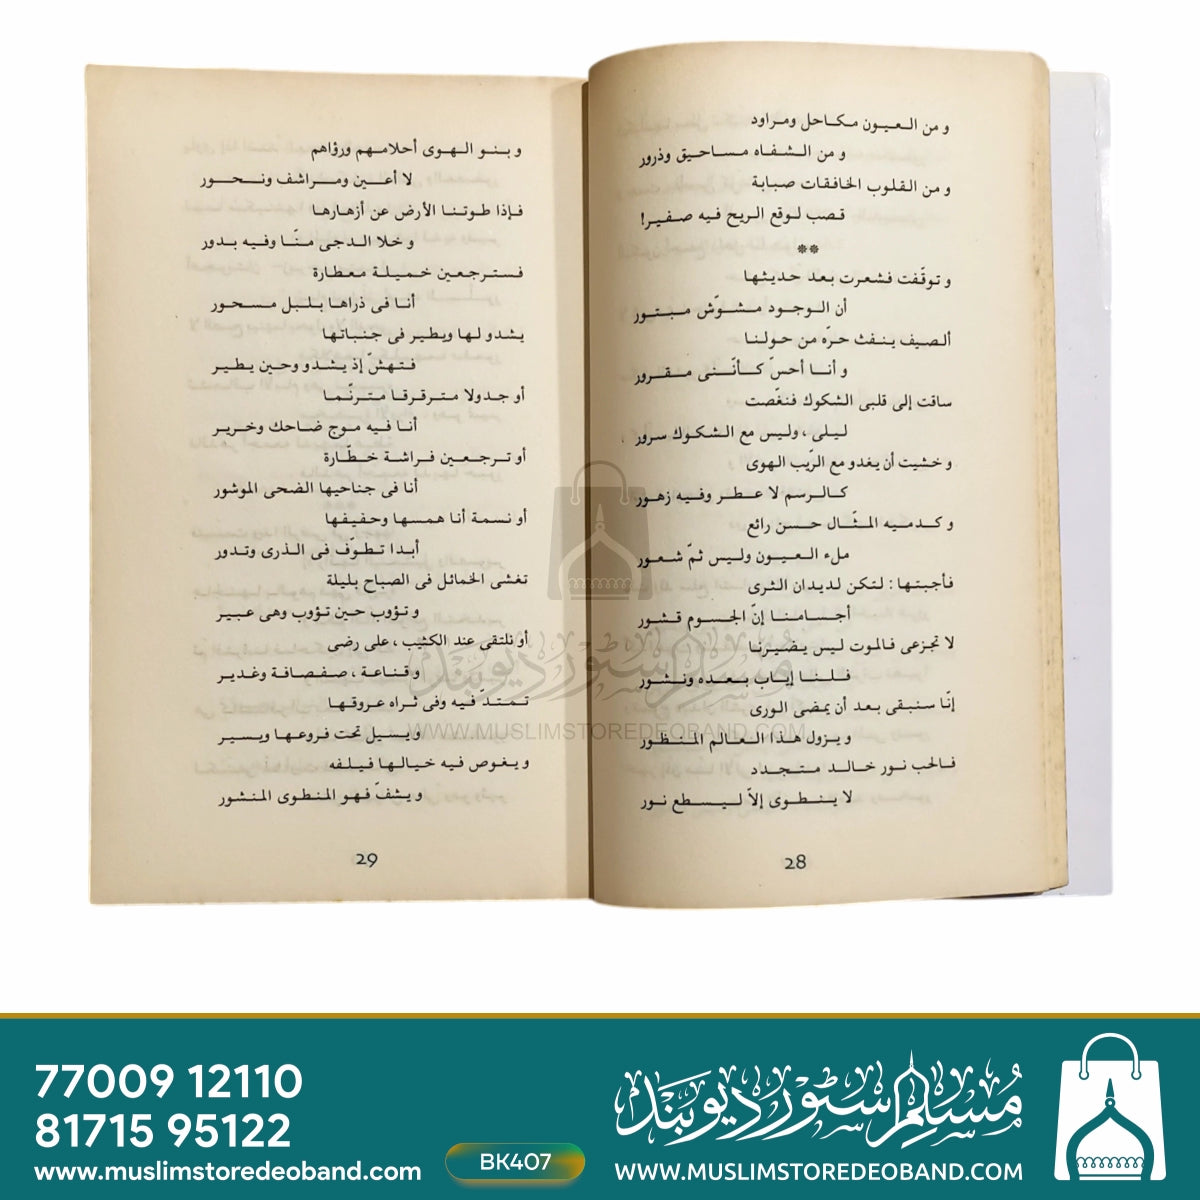 و من العيون مكاحل ومراود
و من الشفاه مساحيق وذرور
و من القلوب الخافقات صبابة
قصب لوقع الريح فيه صفير!
**
و توقّفت فشعرت بعد حديثها
أن الوجود مشوّش مبتور
ألصيف ينفث حرّه من حولنا
و أنا أحسّ كأنّنى مقرور
ساقت إلى قلبى الشكوك فنغّصت
ليلى ، وليس مع الشكوك سرور
و خشيت أن يغدو مع الرّيب الهوى
كالرسم لا عطر وفيه زهور
و كدميه المثّال حسن رائع
ملء العيون وليس ثمّ شعور
فأجبتها : لتكن لديدان الثرى
أجسامنا إنّ الجسوم قشور
لا تجزعى فالموت ليس يضيرنا
فلنا إياب بعده ونشور
إنّا سنبقى بعد أن يمضى الورى
و يزول هذا العالم المنظور
فالحب نور خالد متجدد
لا ينطوى إلاّ ليسطع نور
28
و بنو الهوى أحلامهم ورؤاهم
لا أعين ومراشف ونحور
فإذا طوتنا الأرض عن أزهارها
و خلا الدجى منّا وفيه بدور
فسترجعين خميلة معطارة
أنا فى ذراها بلبل مسحور
يشدو لها ويطير فى جنباتها
فتهشّ إذ يشدو وحين يطير
أو جدولا مترقرقا مترنّما
أنا فيه موج ضاحك وخرير
أو ترجعين فراشة خطّارة
أنا فى جناحيها الضحى الموشور
أو نسمة أنا همسها وحفيفها
أبدا تطوّف فى الذرى وتدور
تغشى الخمائل فى الصباح بليلة
و تؤوب حين تؤوب وهى عبير
أو نلتقى عند الكثيب ، على رضى
و قناعة ، صفصافة وغدير
تمتدّ فيه وفى ثراه عروقها
و يسيل تحت فروعها ويسير
و يغوص فيه خيالها فيلفه
و يشفّ فهو المنطوى المنشور
29
مسلم سٹور دیوبند
WWW.MUSLIMSTOREDEOBAND.COM
77009 12110
81715 95122
www.muslimstoredeoband.com
BK407
مسلم سٹور دیوبند
WWW.MUSLIMSTOREDEOBAND.COM